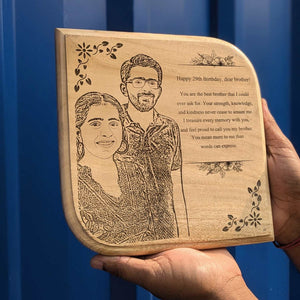 Happy 29th Birthday, dear brother!
You are the best brother that I could
ever ask for. Your strength, knowledge,
and kindness never cease to amaze me.
I treasure every memory with you,
and feel proud to call you my brother.
You mean more to me than
words can express.